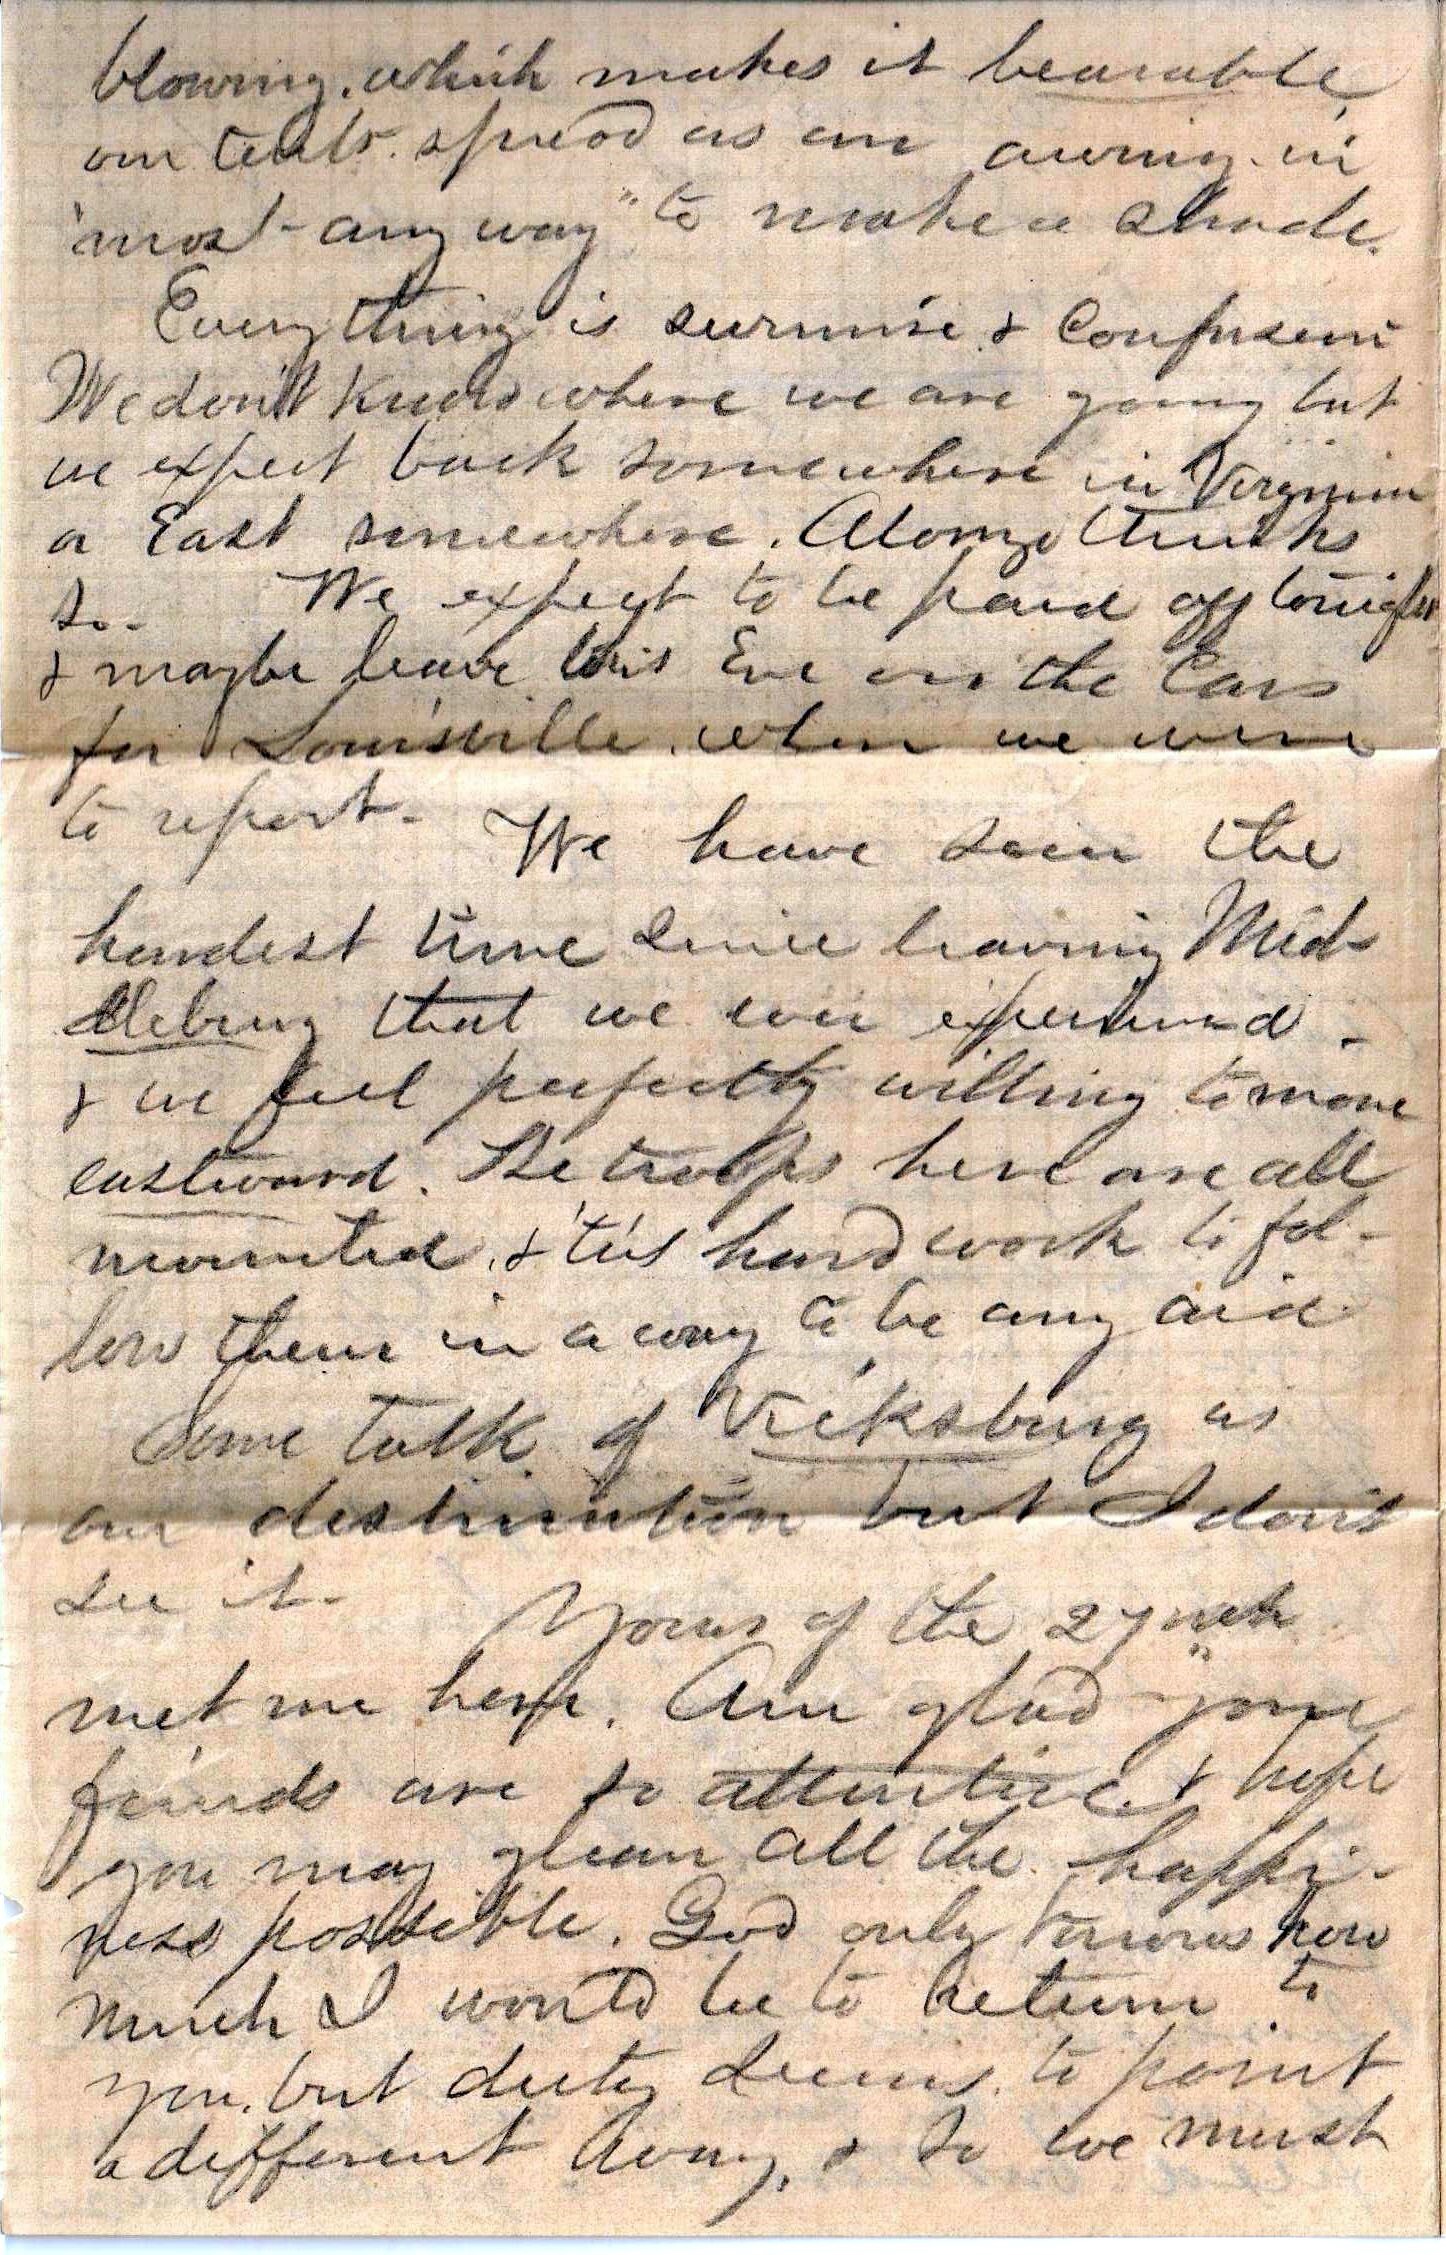 blowing. which makes it bearable,
our tents. spread as an awning. in
"most-any way" to make a shade.
Everything is surmise & Confusion
We don't know where we are going but
we expect back somewhere in Virginia
or East somewhere. Alonzo thinks
so. We expect to be paid off tonight
& maybe leave this Eve on the Cars
for Louisville. when we were
to report. We have seen the
hardest time since leaving Mid-
dleburg that we ever experienced -
& we feel perfectly willing to move
eastward. The troops here are all
mounted. & 'tis hard work to fol-
low them in a way to be any aid
Some talk of Vicksburg as
our destination but I don't
see it. Yours of the 27"
met me here. Am glad your
friends are so attentive. & hope
you may glean all the happi-
ness possible. God only knows how
much I would to return to
you. but duty seems. to point
a different way, & so we must